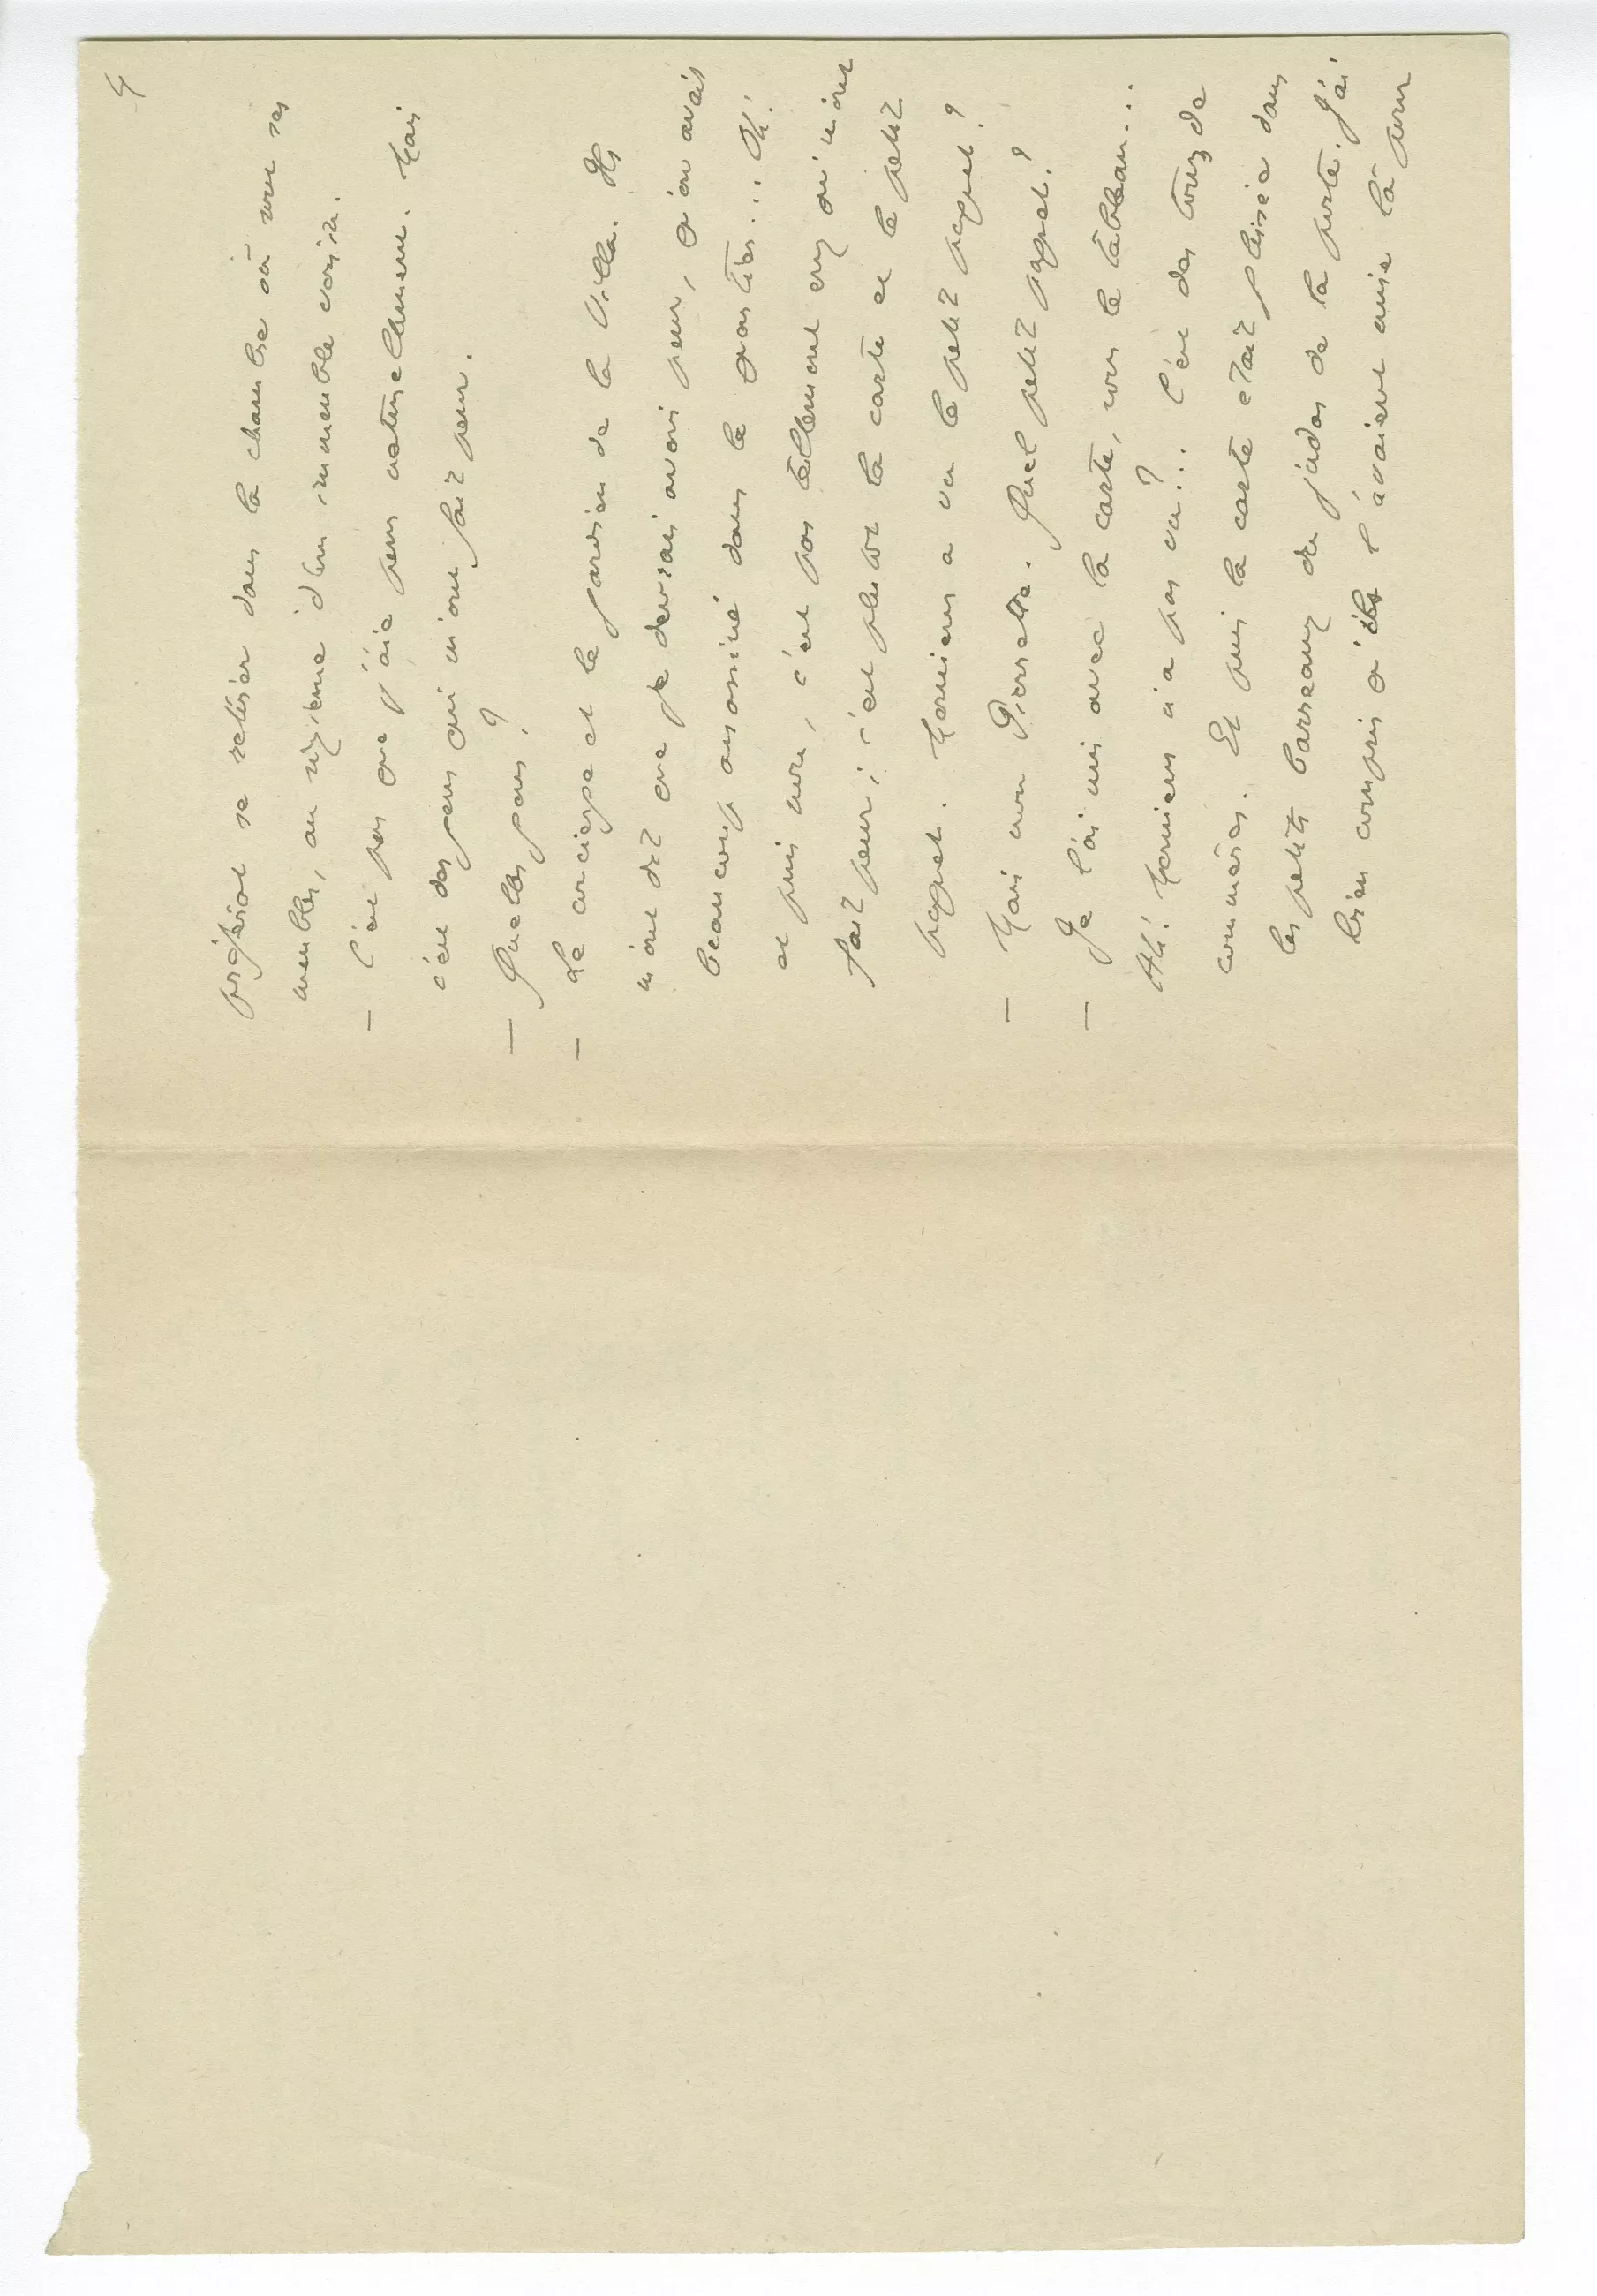 4
préférant se retirer dans la chambre où sont ses
meubles, au sixième d'un immeuble voisin.
— C'est pas que j'aie peur actuellement. Mais
c'est des gens qui m'ont fait peur.
— Quels gens ?
— Le concierge et le gardien de la Villa. Ils
m'ont dit que je devrais avoir peur, qu'on avait
beaucoup assassiné dans le quartier... Oh !
et puis non, c'est pas tellement eux qui m'ont
fait peur ; c'est plutôt la carte et le petit
paquet. Monsieur a vu le petit paquet ?
— Mais non Pierrette. Quel petit paquet ?
— Je l'ai mis avec la carte, sous le tableau...
Ah ! Monsieur n'a pas vu ?.. C'est des tours de
commères. Et puis la carte était glissée dans
les petits barreaux du judas de la porte. J'ai
bien compris qu'ils l'avaient mise là pour